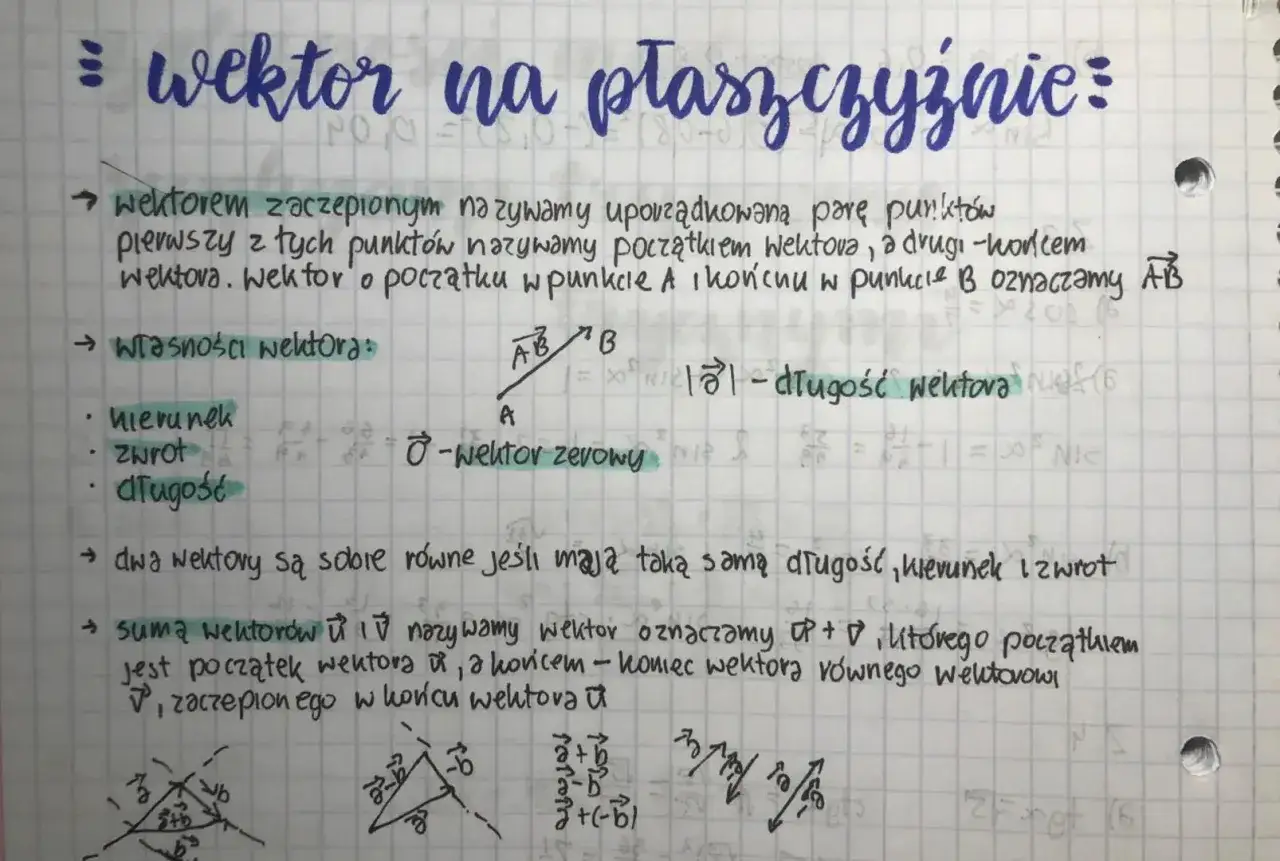 wektor na płaszczyźnie
→ wektorem zaczepionym nazywamy uporządkowaną parę punktów
pierwszy z tych punktów nazywamy początkiem wektora, a drugi - końcem
wektora. wektor o początku w punkcie A i końcu w punkcie B oznaczamy A⃗B⃗
→ własności wektora:
A⃗B⃗ B
A
|a⃗| - długość wektora
· kierunek
· zwrot
· długość
0⃗ - wektor zerowy
→ dwa wektory są sobie równe jeśli mają taką samą długość, kierunek i zwrot
→ sumą wektorów u⃗ i v⃗ nazywamy wektor oznaczamy u⃗ + v⃗, którego początkiem
jest początek wektora u⃗, a końcem - koniec wektora równego wektorowi
v⃗, zaczepionego w końcu wektora u⃗
a⃗ b⃗ a⃗+b⃗ b⃗
a⃗-b⃗ -b⃗ a⃗
a⃗+b⃗
a⃗-b⃗
a⃗+(-b⃗)
a⃗ a⃗ -a⃗